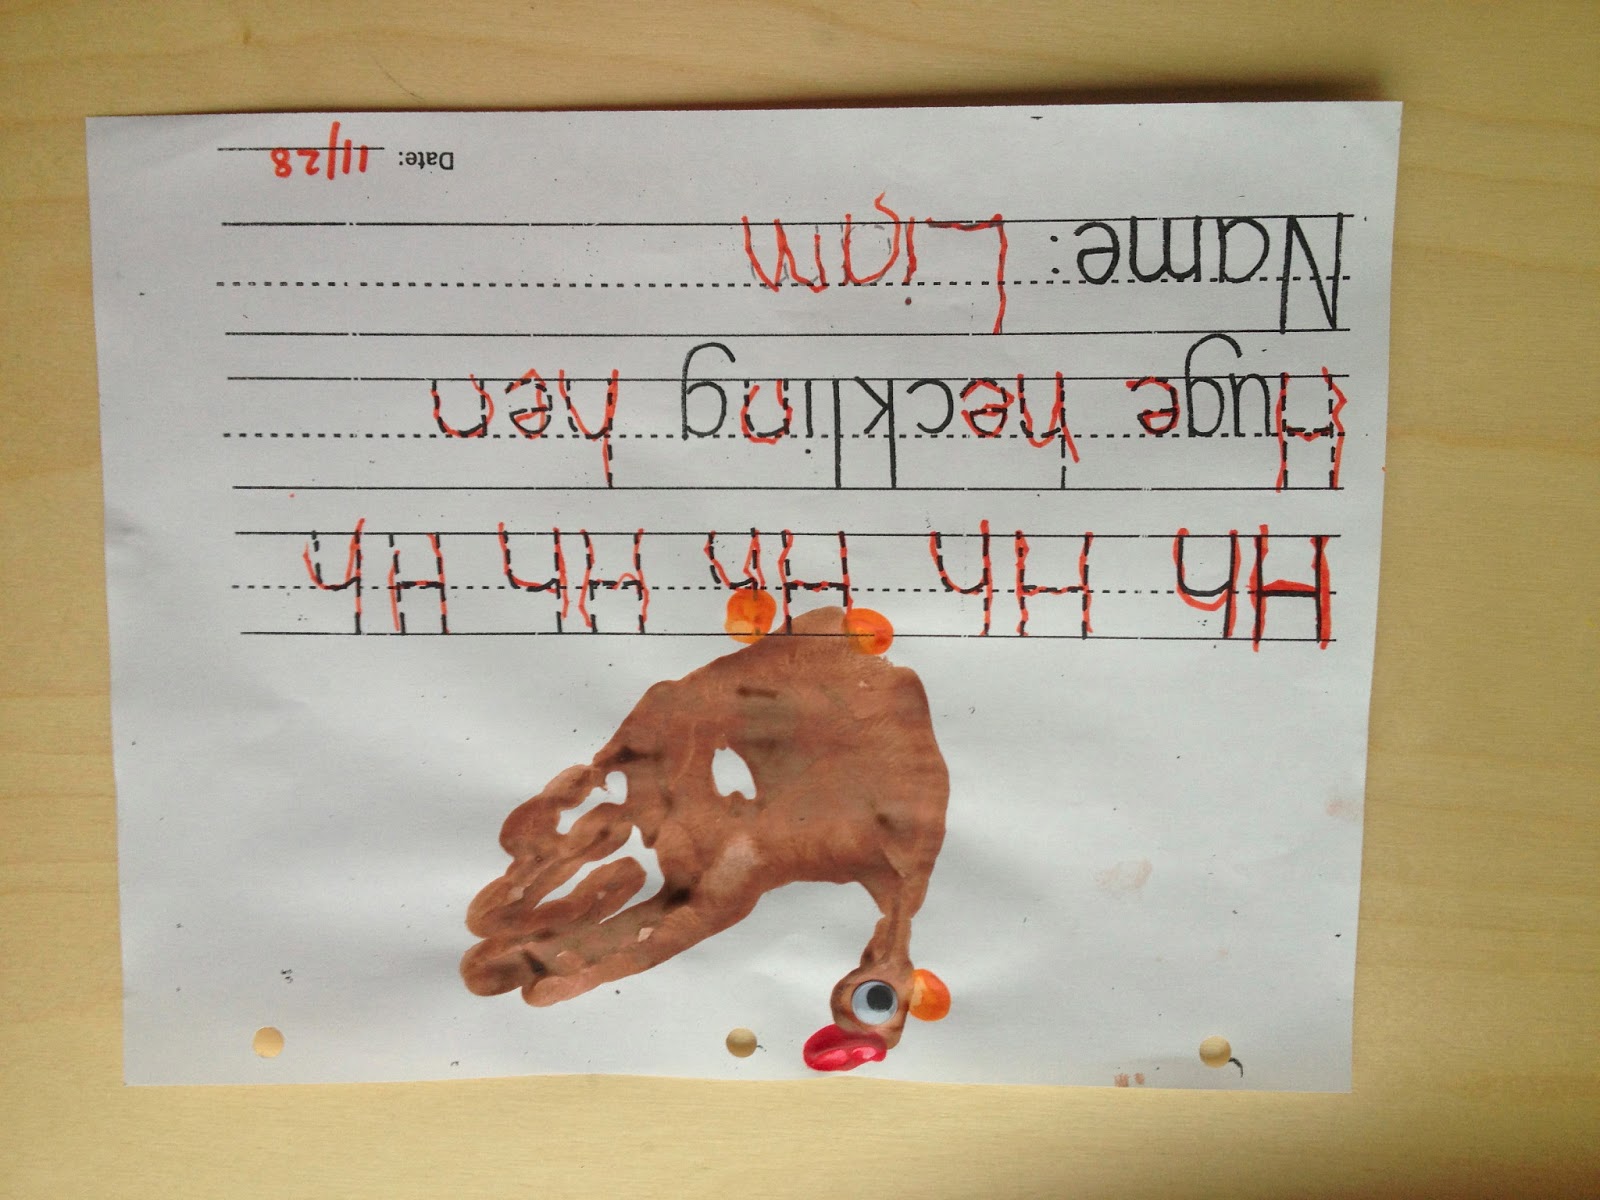 Hh Hh Hh Hh Hh
Huge heckling hen
Name: Liam
Date: 11/28